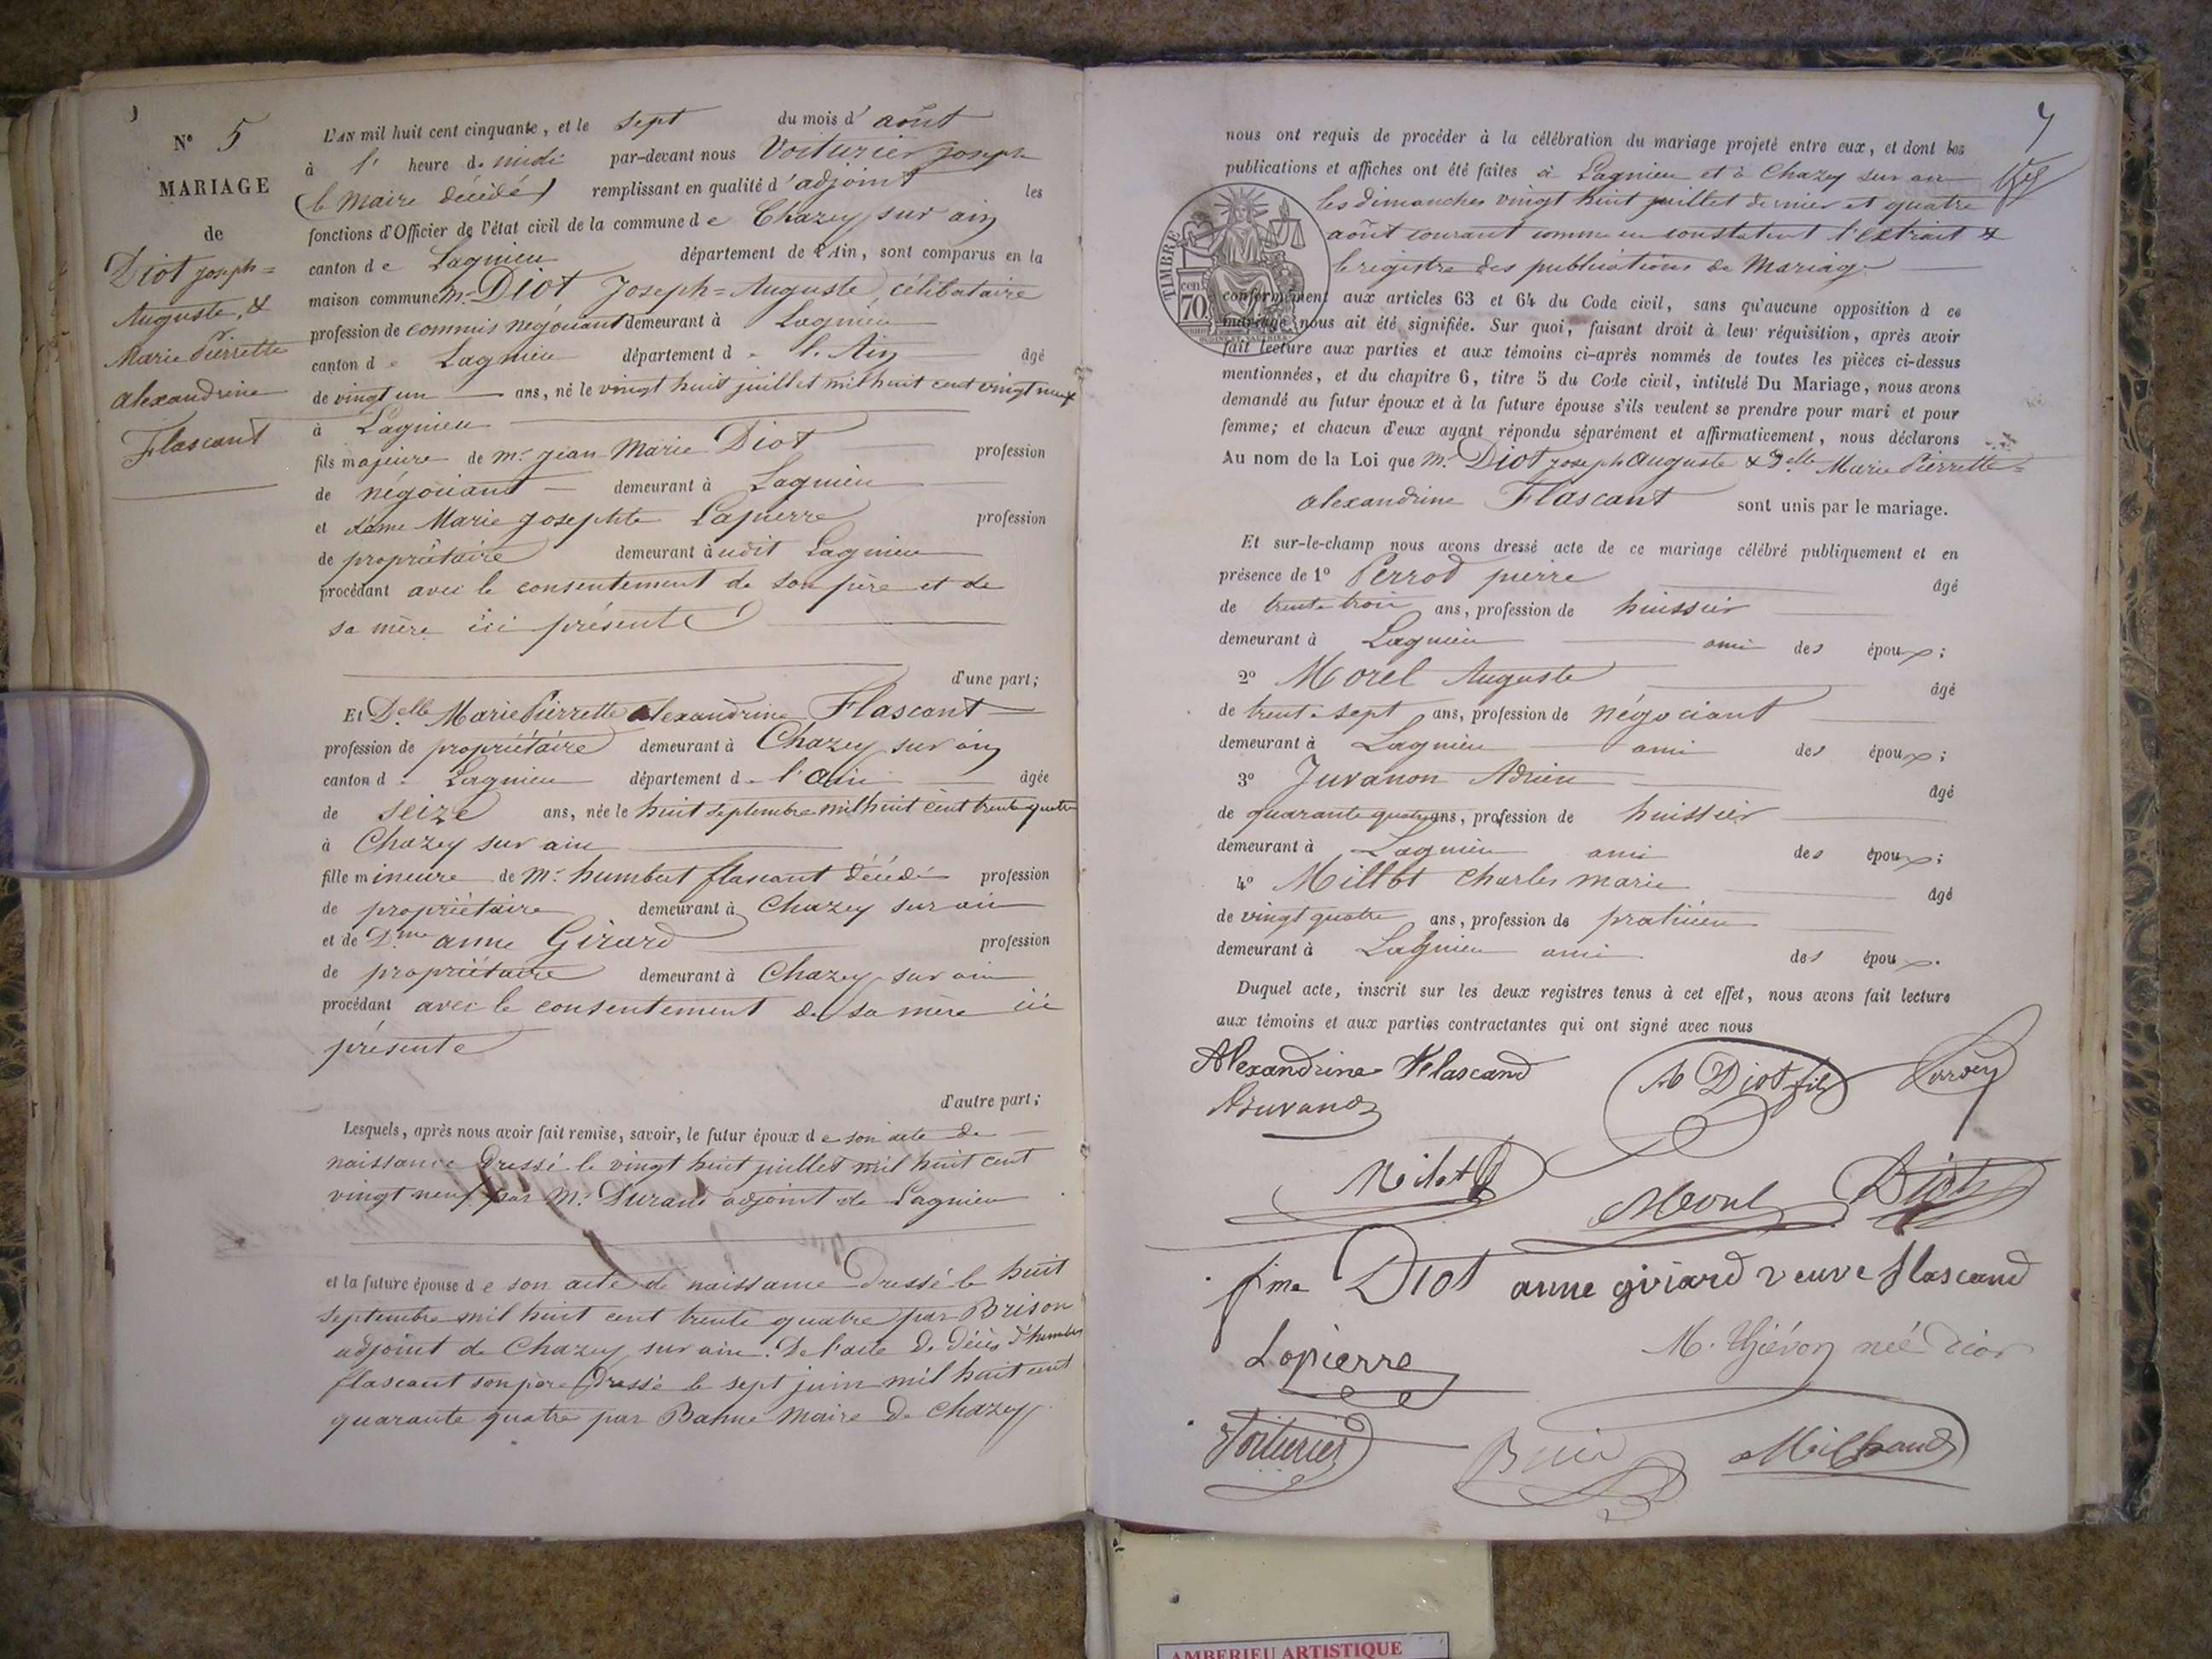 N° 5
MARIAGE
de
Diot joseph=
Auguste, &
Marie Pierrette
alexandrine
Flascant
L'AN mil huit cent cinquante, et le sept du mois d'août
à l' heure de midi par-devant nous Voiturier joseph
(le Maire décédé) remplissant en qualité d'adjoint les
fonctions d'Officier de l'état civil de la commune de Chazey sur ain
canton de Lagnieu département de l'Ain, sont comparus en la
maison commune mr Diot Joseph=Auguste célibataire
profession de commis négociant demeurant à Lagnieu
canton de Lagnieu département de l'Ain âgé
de vingt un ans, né le vingt huit juillet mil huit cent vingt neuf
à Lagnieu
fils majeure de mr jean Marie Diot profession
de négociant demeurant à Lagnieu
et dame Marie josephte Lapierre profession
de propriétaire demeurant à udit Lagnieu
procédant avec le consentement de son père et de
sa mère ici présente
d'une part;
Et Delle Marie Pierrette alexandrine Flascant
profession de propriétaire demeurant à Chazey sur ain
canton de Lagnieu département de l'ain âgée
de seize ans, née le huit septembre mil huit cent trente quatre
à Chazey sur ain
fille mineure de Mr humbert flascant décédé profession
de propriétaire demeurant à Chazey sur ain
et de Dme anne Girard profession
de propriétaire demeurant à Chazey sur ain
procédant avec le consentement de sa mère ici
présente
d'autre part;
Lesquels, après nous avoir fait remise, savoir, le futur époux de son acte de
naissance dressé le vingt huit juillet mil huit cent
vingt neuf par Mr Durand adjoint de Lagnieu
et la future épouse de son acte de naissance dressé le huit
septembre mil huit cent trente quatre par Brison
adjoint de Chazey sur ain. De l'acte de décès d'humbert
flascant son père dressé le sept juin mil huit cent
quarante quatre par Bahue Maire de Chazey
7
nous ont requis de procéder à la célébration du mariage projeté entre eux, et dont les
publications et affiches ont été faites à Lagnieu et à Chazey sur ain
les dimanches vingt huit juillet dernier et quatre
août courant comme en constatent l'extrait &
le registre des publications de Mariage
TIMBRE
70 cent
conformément aux articles 63 et 64 du Code civil, sans qu'aucune opposition à ce
mariage nous ait été signifiée. Sur quoi, faisant droit à leur réquisition, après avoir
fait lecture aux parties et aux témoins ci-après nommés de toutes les pièces ci-dessus
mentionnées, et du chapitre 6, titre 5 du Code civil, intitulé Du Mariage, nous avons
demandé au futur époux et à la future épouse s'ils veulent se prendre pour mari et pour
femme; et chacun d'eux ayant répondu séparément et affirmativement, nous déclarons
Au nom de la Loi que Mr Diot joseph auguste & Delle Marie Pierrette=
alexandrine Flascant sont unis par le mariage.
Et sur-le-champ nous avons dressé acte de ce mariage célébré publiquement et en
présence de 1° Perrod pierre âgé
de trente trois ans, profession de huissier
demeurant à Lagnieu ami des époux;
2° Morel Auguste âgé
de trente sept ans, profession de négociant
demeurant à Lagnieu ami des époux;
3° Juvanon Adrien âgé
de quarante quatre ans, profession de huissier
demeurant à Lagnieu ami des époux;
4° Millot Charles marie âgé
de vingt quatre ans, profession de praticien
demeurant à Lagnieu ami des époux.
Duquel acte, inscrit sur les deux registres tenus à cet effet, nous avons fait lecture
aux témoins et aux parties contractantes qui ont signé avec nous
Alexandrine Flascand A Diot fils
AJuvanon
Milot Morel Diot
fme Diot anne girard veuve flascand
Lapierre
Voiturier Milhaud
AMBERIEU ARTISTIQUE